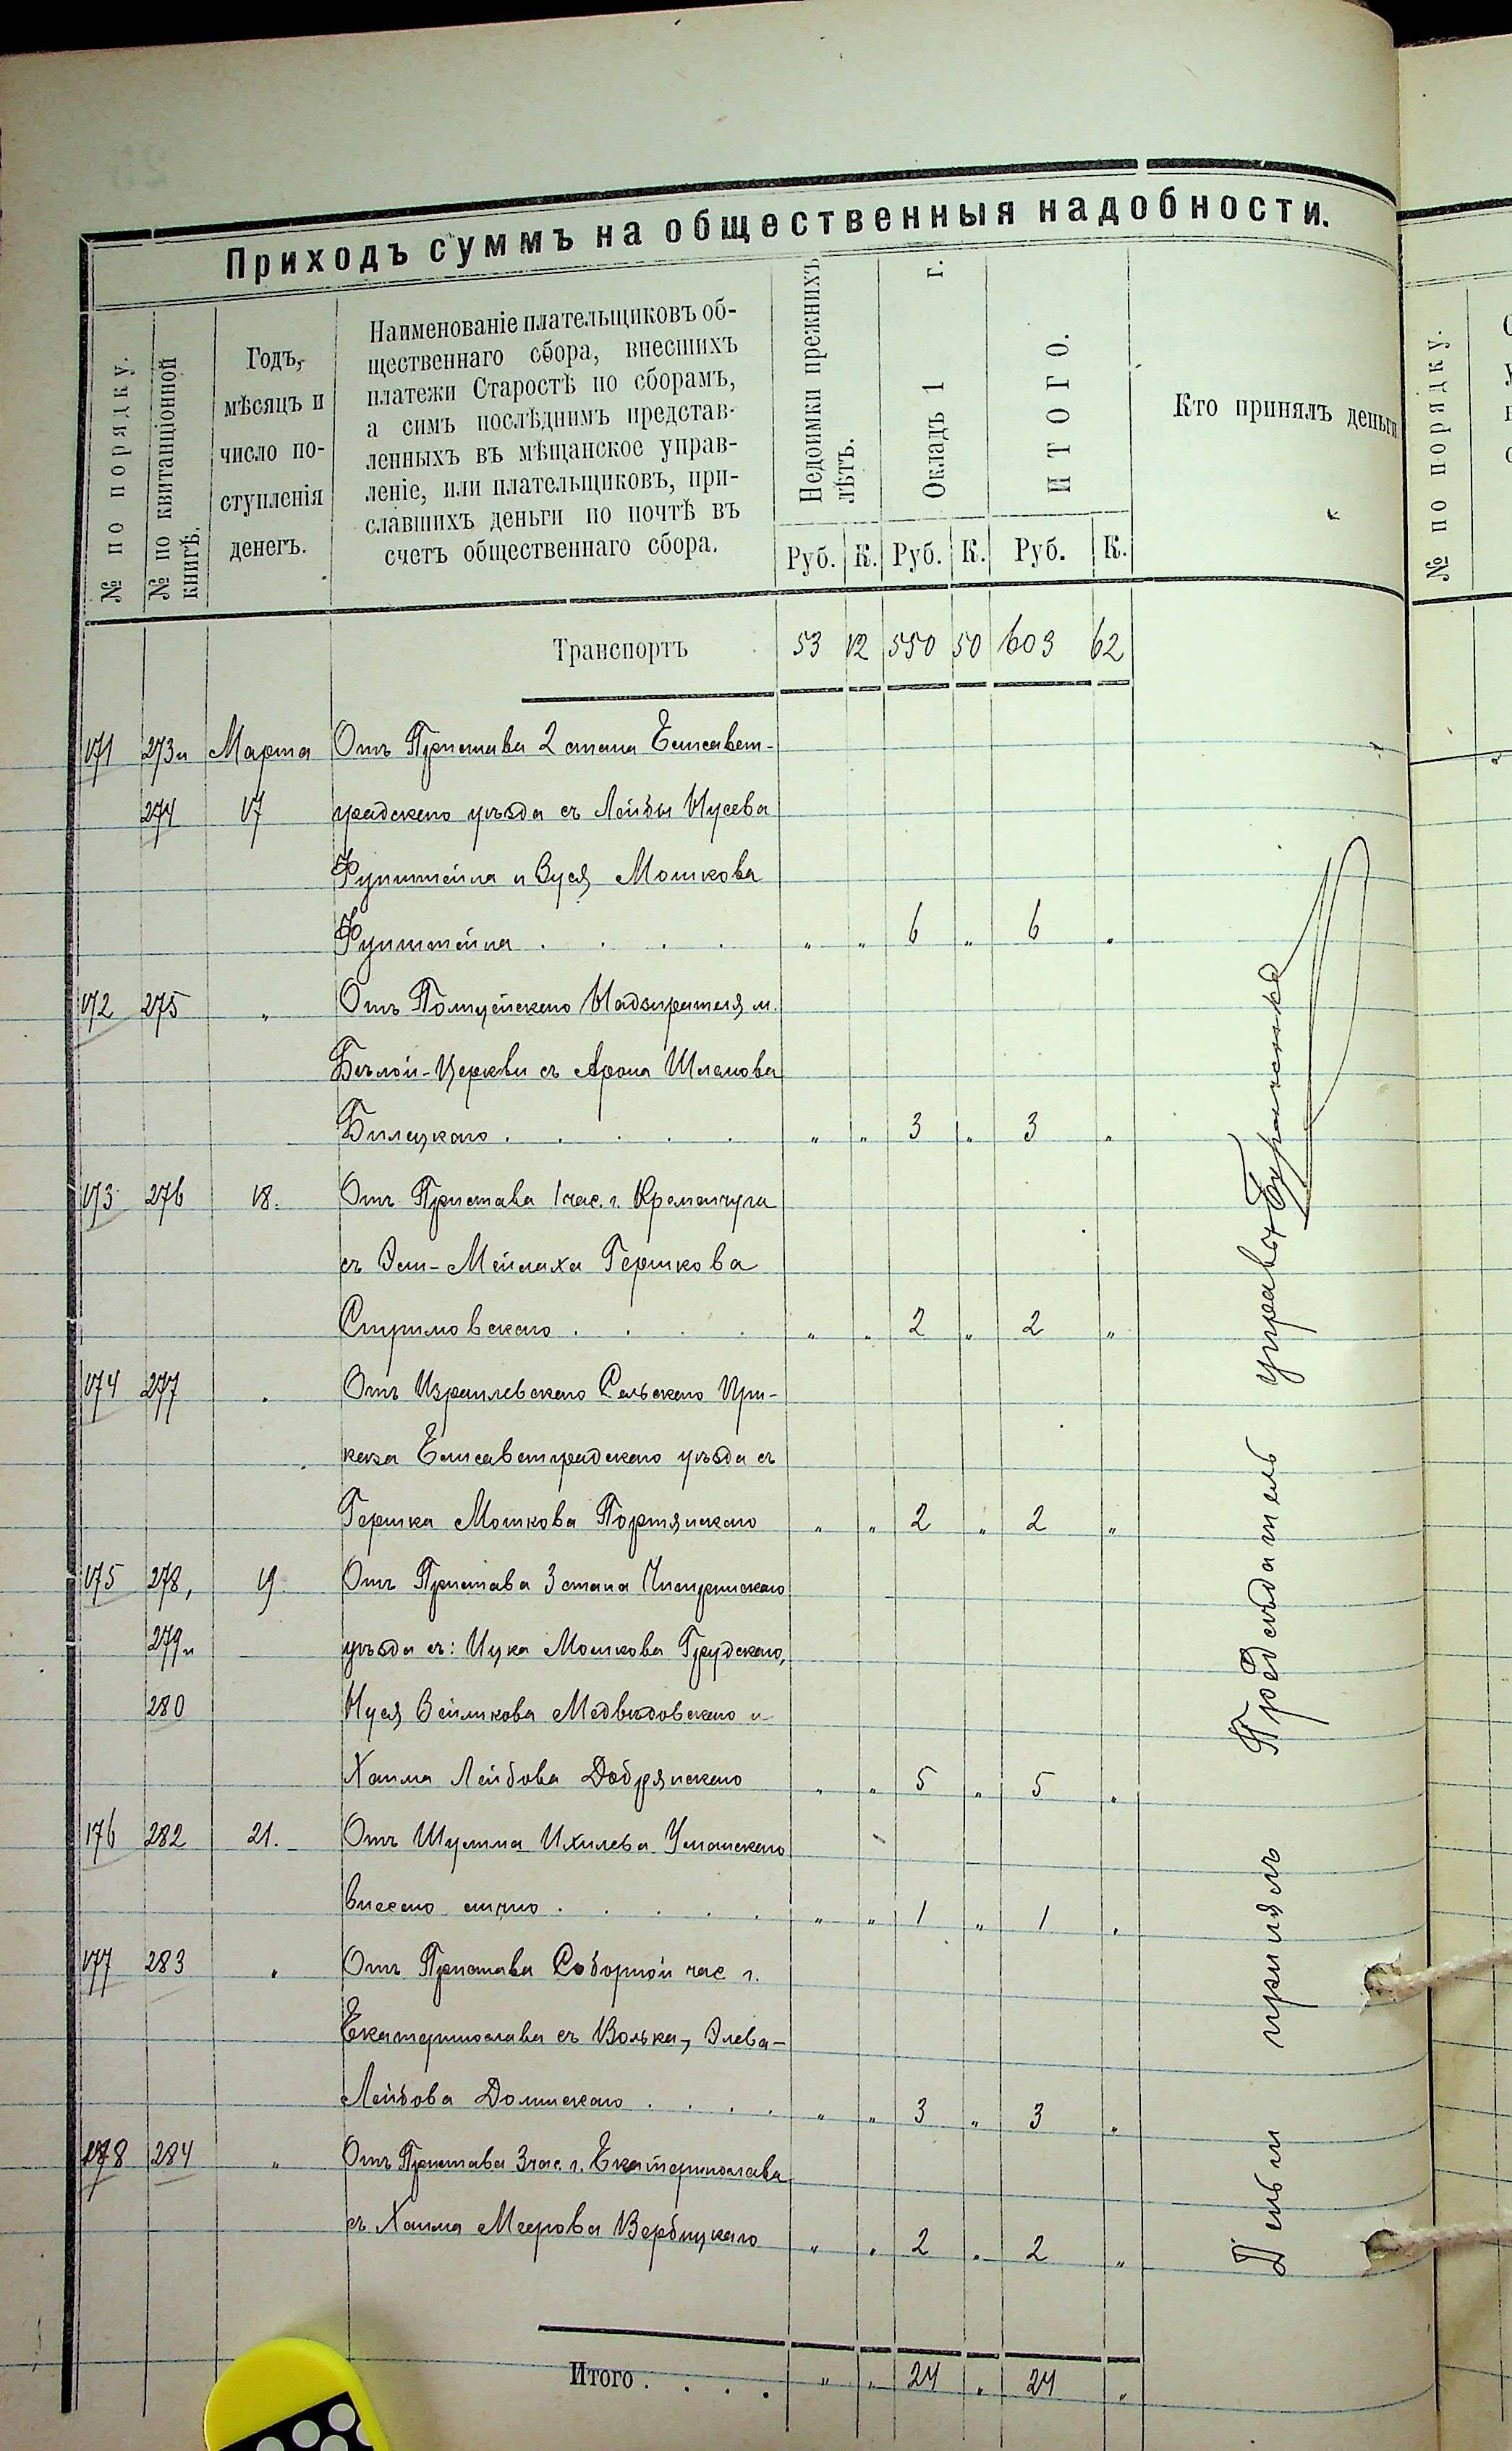 Приходъ суммъ на общественныя надобности.
№ по порядку.
№ по квитанціонной книгѣ.
Годъ,
мѣсяцъ и
число по-
ступленія
денегъ.
Наименованіе плательщиковъ об-
щественнаго сбора, внесшихъ
платежи Старостѣ по сборамъ,
а симъ послѣднимъ представ-
ленныхъ въ мѣщанское управ-
леніе, или плательщиковъ, при-
славшихъ деньги по почтѣ въ
счетъ общественнаго сбора.
Недоимки прежнихъ
лѣтъ.
Окладъ 1 г.
ИТОГО.
Кто принялъ деньги
Руб. К. Руб. К. Руб. К.
Транспортъ 53 12 550 50 603 62
171 273 и Марта Отъ Пристава 2 стана Елисавет-
274 17 градскаго уѣзда съ Лейбы Нусева
и Зуся Мошкова
. . . . " " 6 " 6 "
172 275 " Отъ Полицейскаго Надзирателя м.
Бѣлой-Церкви съ Арона Шлемова
Билецкаго . . . . . " " 3 " 3 "
173 276 18. Отъ Пристава 1 час. г. Кременчуга
съ Эли-Мейлаха Гершкова
. . . . " " 2 " 2 "
174 277 " Отъ Израилевскаго Сельскаго При-
каза Елисаветградскаго уѣзда съ
Гершка Мошкова Портянскаго " " 2 " 2 "
175 278, 19. Отъ Пристава 3 стана Чигиринскаго
279 и уѣзда съ: Ицка Мошкова Грудскаго,
280 Нуся Зейликова Медвѣдовскаго и
Хаима Лейбова Добрянскаго " " 5 " 5 "
176 282 21. Отъ Шулима Ихилева Уманскаго
внесено лично . . . . . " " 1 " 1 "
177 283 " Отъ Пристава Соборной час. г.
Екатеринослава съ Волька-, Элева-
Лейбова Долинскаго . . . . " " 3 " 3 "
178 284 " Отъ Пристава 3 час. г. Екатеринослава
съ Хаима Меерова Вербицкаго " " 2 " 2 "
Итого . . . . " " 24 " 24 "
Деньги принялъ Предсѣдатель управы
№ по порядку.